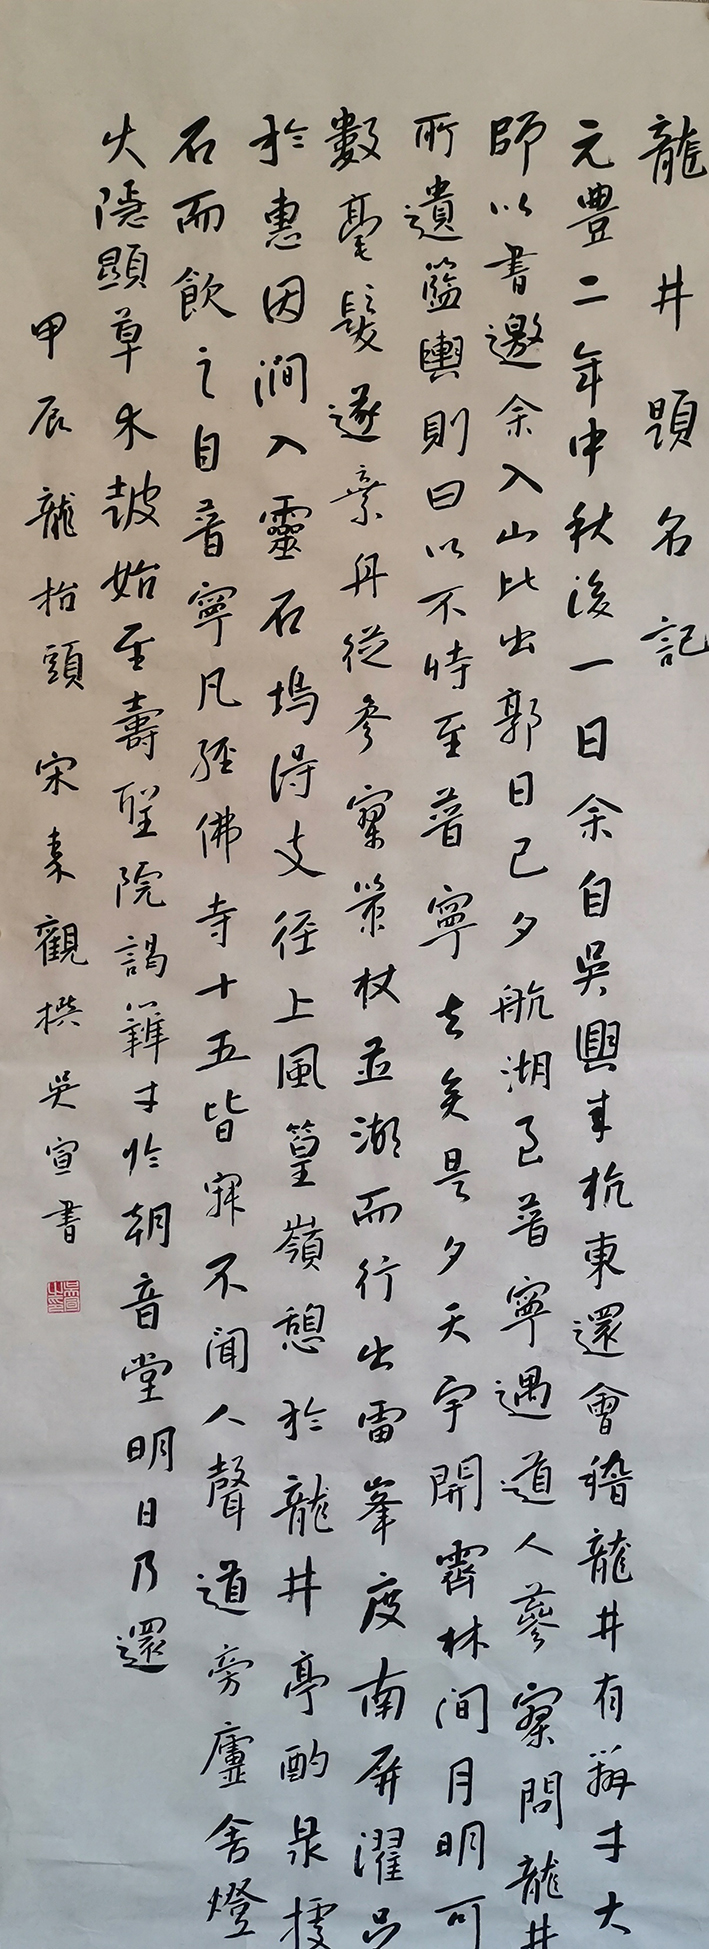 龍井題名記
元豊二年中秋後一日余自吳興來杭東還會稽龍井有辯才大
師以書邀余入山比出郭日已夕航湖至普寧遇道人參寥問龍井
所遺籃輿則曰以不時至普寧去矣是夕天宇開霽林間月明可
數毫髮遂棄舟從參寥策杖並湖而行出雷峯度南屏濯足
於惠因澗入靈石塢得支徑上風篁嶺憩於龍井亭酌泉據
石而飲之自普寧凡經佛寺十五皆寂不聞人聲道旁廬舍燈
火隱顯草木鼓始至壽聖院謁辯才於朝音堂明日乃還
甲辰龍抬頭 宋秦觀撰吳宣書